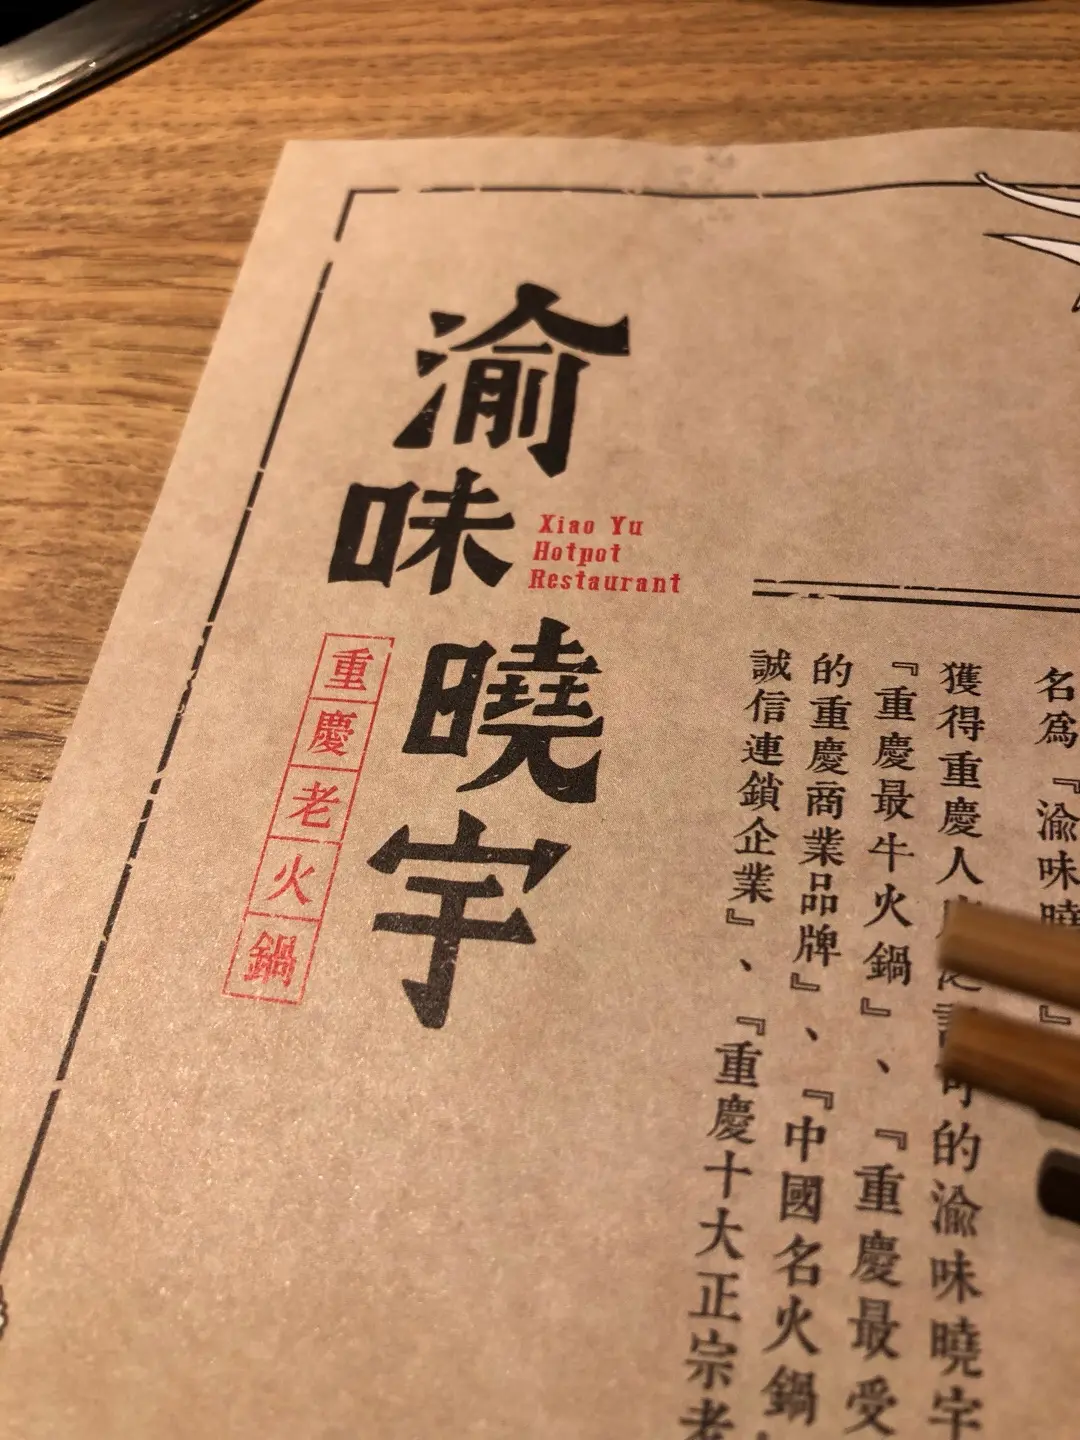 渝味曉宇
Xiao Yu
Hotpot
Restaurant
重慶老火鍋
名爲『渝味曉』
獲得重慶人的渝味曉宇
『重慶最牛火鍋』、『重慶最受
的重慶商業品牌』、『中國名火鍋
誠信連鎖企業』、『重慶十大正宗老